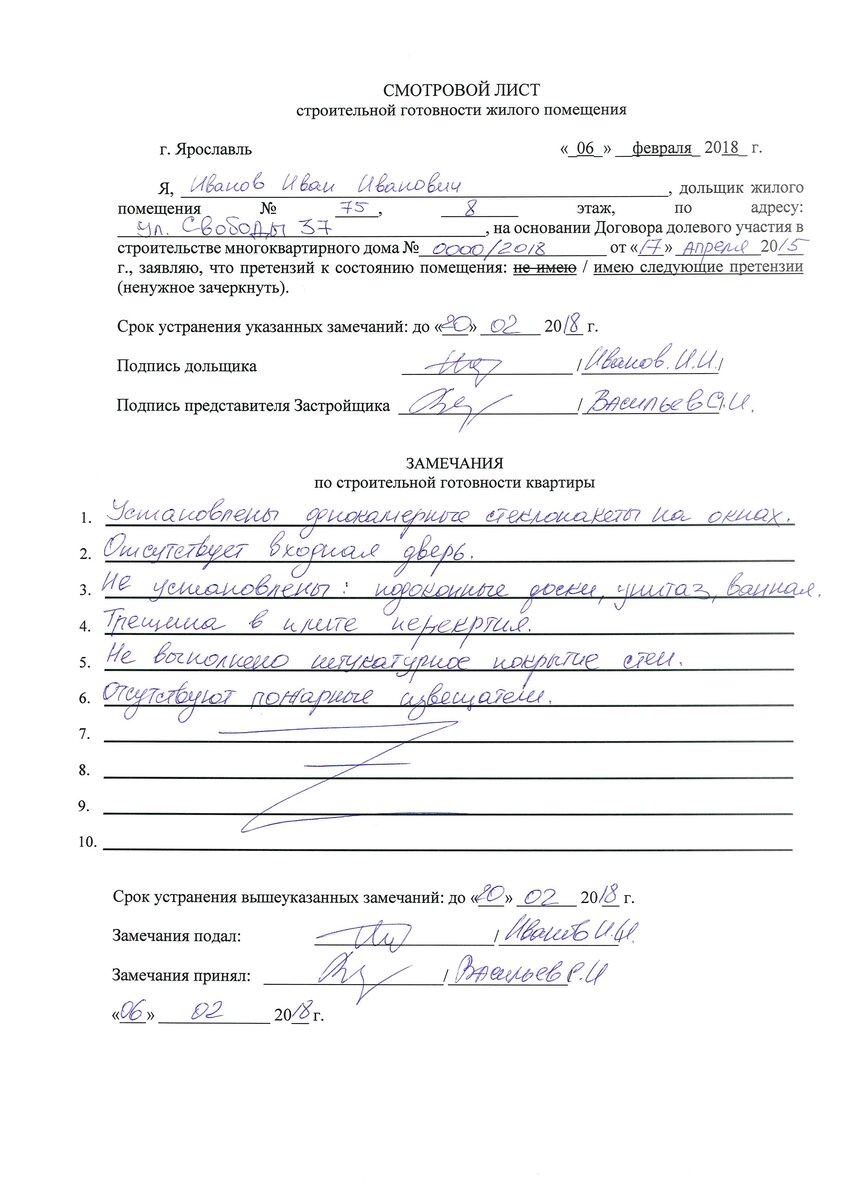 СМОТРОВОЙ ЛИСТ
строительной готовности жилого помещения
г. Ярославль «_06_» __февраля_ 2018_ г.
Я, Иванов Иван Иванович, дольщик жилого
помещения № 75, 8 этаж, по адресу:
ул. Свободы 37, на основании Договора долевого участия в
строительстве многоквартирного дома № 0000/2018 от «17» апреля 2015
г., заявляю, что претензий к состоянию помещения: не имею / имею следующие претензии
(ненужное зачеркнуть).
Срок устранения указанных замечаний: до «20» 02 2018 г.
Подпись дольщика / Иванов.И.И./
Подпись представителя Застройщика / Васильев С.И.
ЗАМЕЧАНИЯ
по строительной готовности квартиры
1. Установлены однокамерные стеклопакеты на окнах.
2. Отсутствует входная дверь.
3. Не установлены: подоконные доски, унитаз, ванная.
4. Трещина в плите перекртия.
5. Не выполнено штукатурное покрытие стен.
6. Отсутствуют пожарные извещатели.
7.
8.
9.
10.
Срок устранения вышеуказанных замечаний: до «20» 02 2018 г.
Замечания подал: / Иванов И.И.
Замечания принял: / Васильев С.И
«06» 02 2018 г.